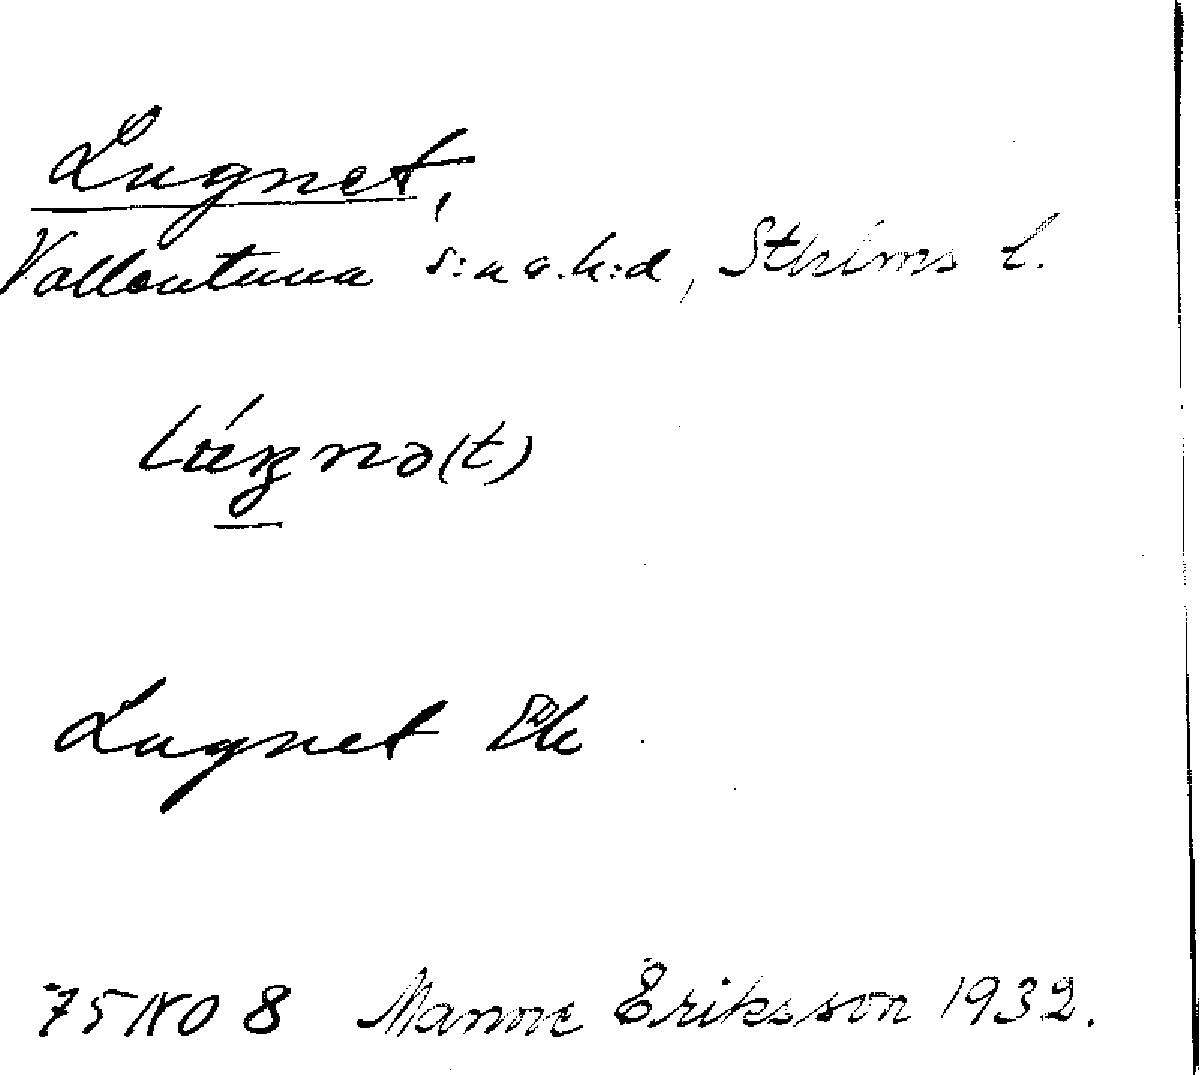 Lugnet,
Vallentuna s:n o. h:d, Sthlms l.
Lugnet Ek
75 NO 8 Manne Eriksson 1932.